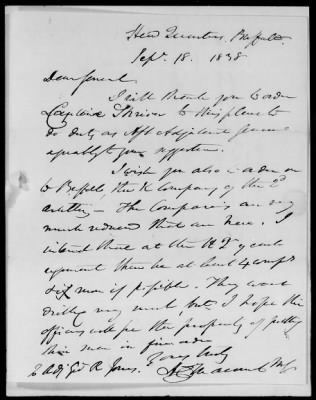 Head Quarters, Buffalo
Sept. 18. 1838
Dear General
I will thank you to order
Captain Shriver to this place to
do duty as Asst Adjutant General
agreeably to your suggestion.
I wish you also to order on
to Buffalo, the K Company of the 2d
Artillery — The Companies are very
much reduced that are here. I
intend there at the Hd Qr of each
regiment there be at least 4 comps
men if possible. They want
drilling very much, but I hope the
officers will see the propriety of putting
their men in fine order
Yours truly
to Adj Genl R Jones.